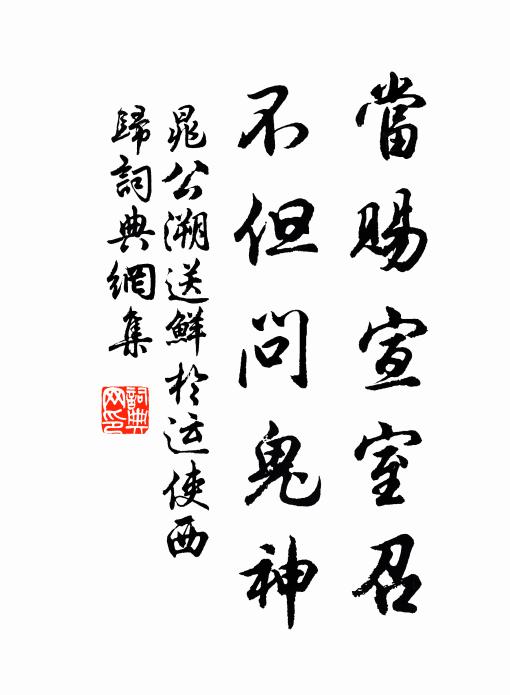 當賜宣室召
不但問鬼神
晁公溯送鮮於运使西
歸詞典網集
詞典
网印